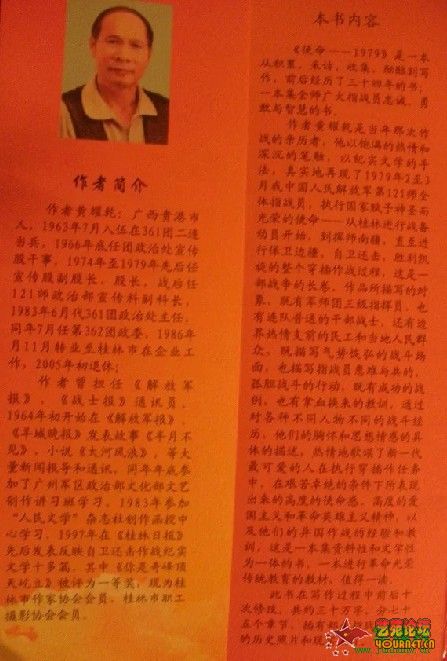 作者简介
作者黄耀乾：广西贵港市
人，1963年7月入伍在361团二连
当兵，1966年底任团政治处宣传
股干事，1974年至1979年先后任
宣传股副股长，股长，战后任
121师政治部宣传科副科长，
1983年6月代361团政治处主任，
同年7月任第362团政委，1986年
11月转业至桂林市在企业工
作，2005年初退休；
作者曾担任《解放军
报》、《战士报》通讯员，
1964年初开始在《解放军报》、
《羊城晚报》发表故事《半月不
见》、小说《大河风浪》，等大
量新闻报导和通讯，同年年底参
加了广州军区政治部文化部文艺
创作讲习班学习，1983年参加
“人民文学”杂志社创作函授中
心学习，1997年在《桂林日报》
先后发表反映自卫还击作战纪实
文学十多篇，其中《你是奇峰顶
天屹立》被评为一等奖，现为桂
林市作家协会会员，桂林市职工
摄影协会会员。
本书内容
《使命——1979》是一本
从积累、采访、收集、酝酿到写
作，前后经历了三十四年的书，
一本集全师广大指战员忠诚、勇
敢与智慧的书。
作者黄耀乾是当年那次作
战的亲历者，他以饱满的热情和
深沉的笔触，以纪实文学的手
法，真实地再现了1979年2至3
月我中国人民解放军第121师全
体指战员，执行国家赋予神圣而
光荣的使命——从桂林进行战备
动员开始，到挥师南疆，直至进
行保卫边疆，自卫还击，胜利凯
旋的整个穿插作战过程，这是一
部战争的长卷。作品所描写的对
象，既有军师团三级指挥员，也
有连队普通的干部战士，还有边
界热情支前的民工和当地人民群
众，既描写气势恢弘的战斗场
面，也描写指战员患难与共的，
孤胆战斗的行动，既有成功的战
例，也有拿血换来的教训，通过
对各师不同人物不同的战斗经
历，他们的胸怀和思想情感的具
体的描述，热情地歌颂了新一代
最可爱的人在执行穿插作任务
中，在艰苦卓绝的条件下所表现
出来的高度的使命感，高度的爱
国主义和革命英雄主义精神，以
及他们的异国作战的经验和教
训，这是一本集资料性和文学性
为一体的书，一本进行革命光荣
传统教育的教材，值得一读。
此书在写作过程中前后十
次修改，共约三十万字，分七十
五个章节，插有
的历史照片和
艺苑论坛
YOURNET.CN